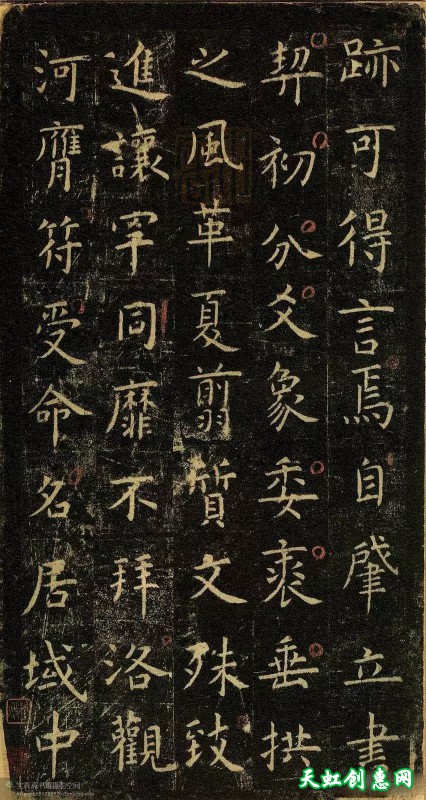 跡可得言焉自肈立書
契初分爻象委裘垂拱
之風革夏翦質文殊致
進讓罕同靡不拜洛觀
河膺符受命名居域中
天虹创意网